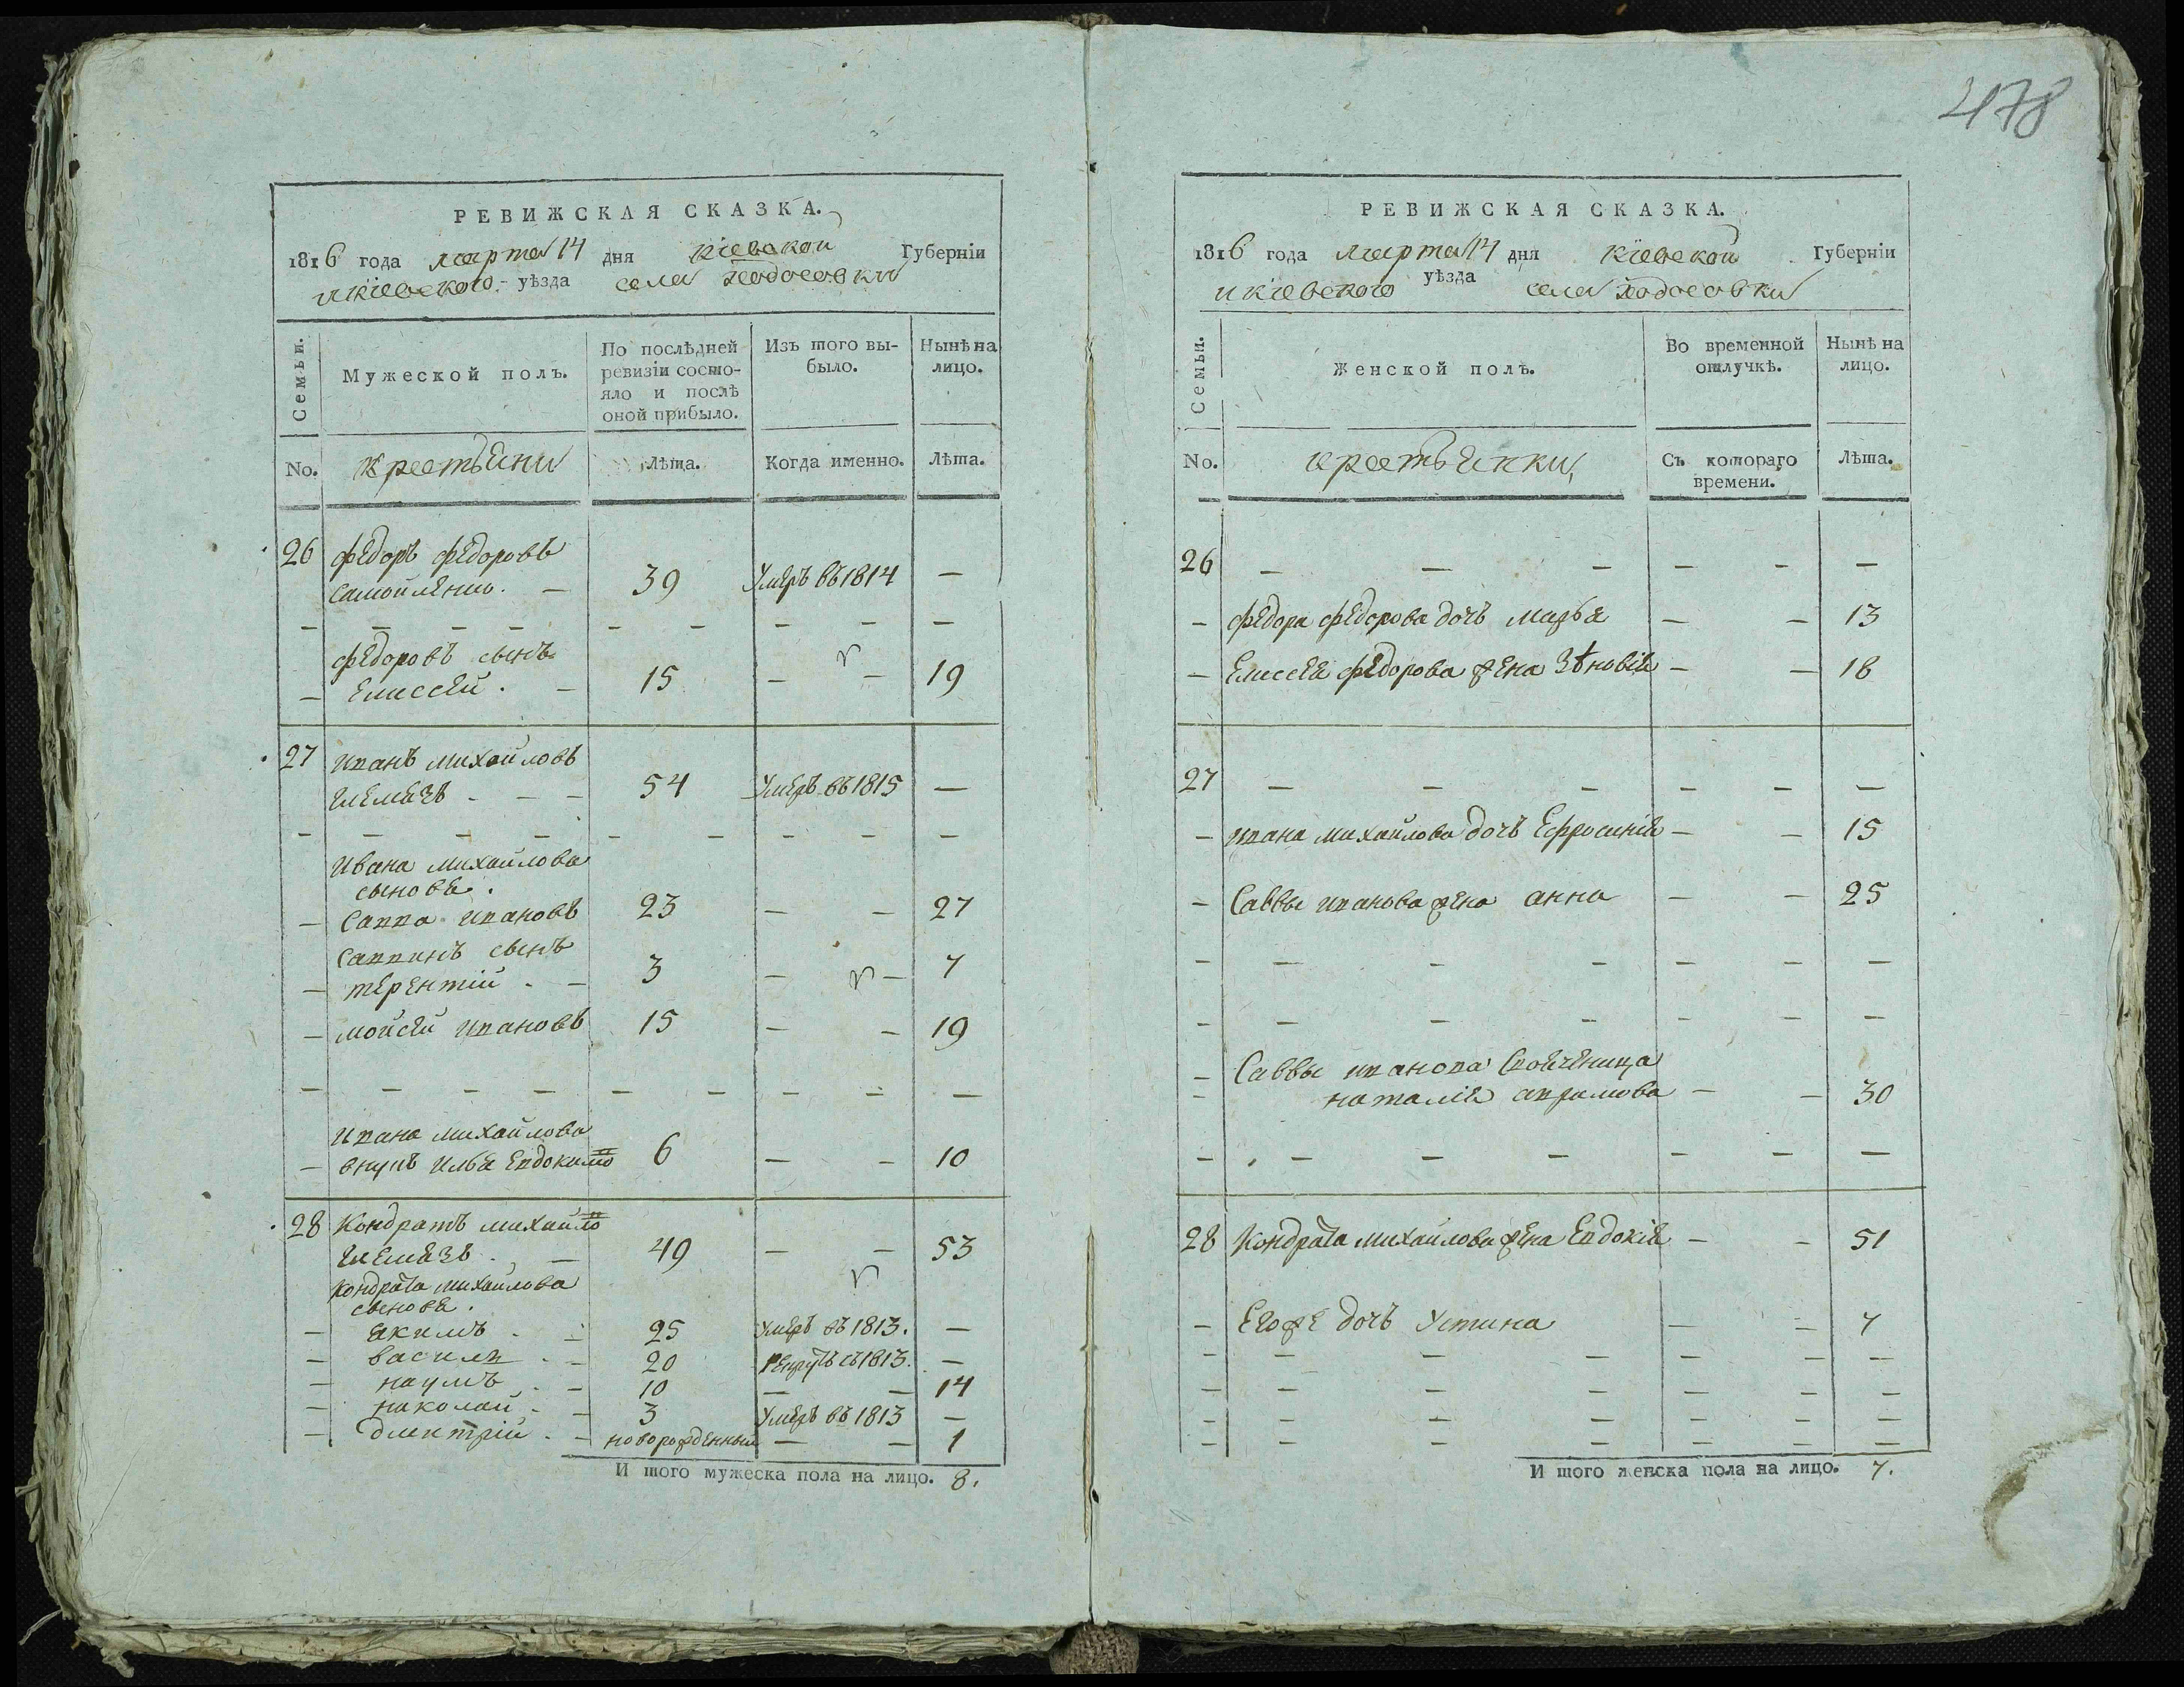 478
РЕВИЖСКАЯ СКАЗКА.
1816 года марта 14 дня Кіевской Губерніи
и Кіевского уѣзда села Ходосовки
Семьи. Мужеской полъ. По послѣдней ревизіи состояло и послѣ оной прибыло. Изъ того выбыло. Нынѣ на лицо.
No. Крестьяни Лѣта. Когда именно. Лѣта.
26 Федоръ Федоровъ
Самойленко. — 39 Умеръ въ 1814 —
Федоровъ сынъ
— Елисей. — 15 — — 19
27 Иванъ Михайловъ
54 Умеръ въ 1815 —
Ивана Михайлова
сыновья.
— Савва Ивановъ 23 — — 27
Саввинъ сынъ
— Терентій. — 3 — — 7
— Мойсей Ивановъ 15 — — 19
Ивана Михайлова
— внукъ Илья Евдокимо 6 — — 10
28 Кондратъ Михайло
49 — — 53
Кондрата Михайлова
сыновья.
— Якимъ. — 25 Умеръ въ 1813. —
— Василь. — 20 Рекрутъ съ 1813. —
— Наумъ. — 10 — — 14
— Николай. — 3 Умеръ въ 1813 —
— Дмитрій. — новорожденный — — 1
И того мужеска пола на лицо. 8.
РЕВИЖСКАЯ СКАЗКА.
1816 года марта 14 дня Кіевской Губерніи
и Кіевского уѣзда села Ходосовки
Семьи. Женской полъ. Во временной отлучкѣ. Нынѣ на лицо.
No. Крестьянки, Съ котораго времени. Лѣта.
26 — — — — — —
— Федора Федорова дочь Марья — — 13
— Елисея Федорова жена Зѣновія — — 18
27 — — — — — —
— Ивана Михайлова дочь Ефросинія — — 15
— Саввы Иванова жена Анна — — 25
— Саввы Иванова Своячница
— наталія Аврамова — — 30
28 Кондрата Михайлова жена Евдокія — — 51
— Егоже дочь Устина — — 7
И того женска пола на лицо. 7.